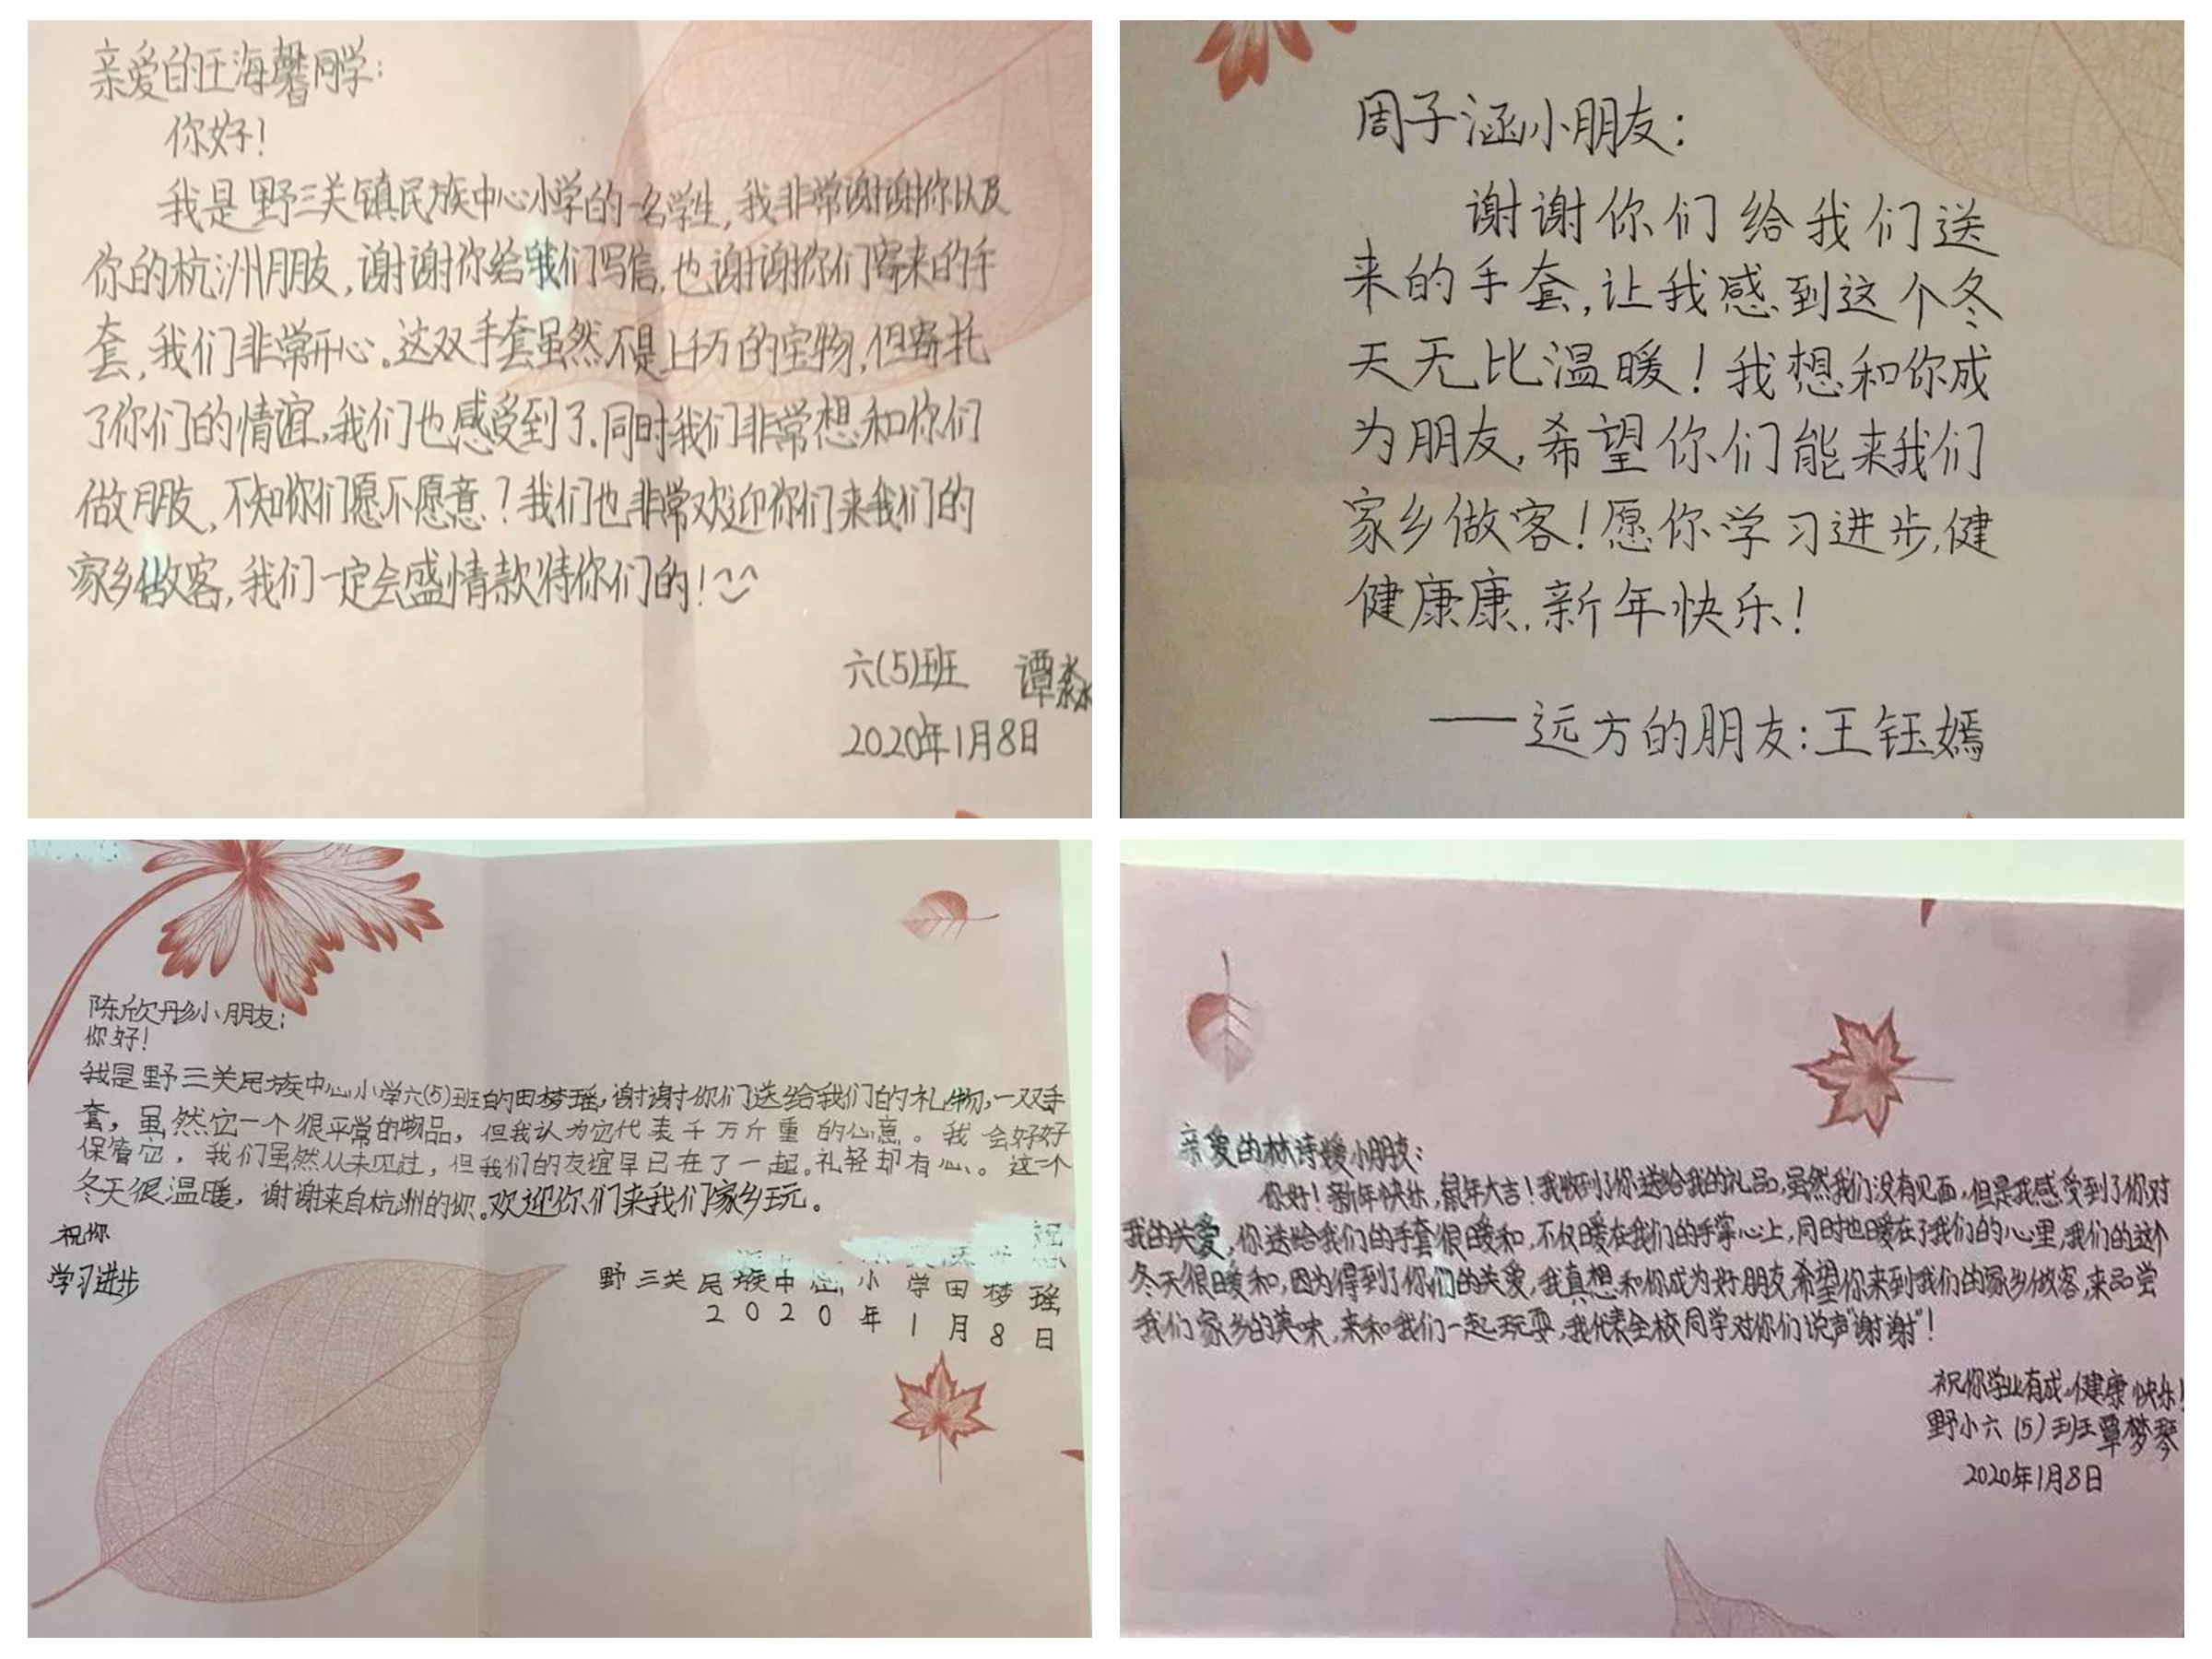 亲爱的王海馨同学:
你好!
我是野三关镇民族中心小学的一名学生,我非常谢谢你以及
你的杭洲朋友,谢谢你给我们写信,也谢谢你们寄来的手
套,我们非常开心。这双手套虽然不是上千万的宝物,但寄托
了你们的情谊,我们也感受到了.同时我们非常想和你们
做朋友,不知你们愿不愿意?我们也非常欢迎你们来我们的
家乡做客,我们一定会盛情款待你们的!^‿^
六(5)班 谭淼
2020年1月8日
周子涵小朋友:
谢谢你们给我们送
来的手套,让我感到这个冬
天无比温暖!我想和你成
为朋友,希望你们能来我们
家乡做客!愿你学习进步,健
健康康,新年快乐!
——远方的朋友:王钰嫣
陈欣彤小朋友:
你好!
我是野三关民族中心小学六(5)班的田梦瑶,谢谢你们送给我们的礼物,一双手
套,虽然它一个很平常的物品,但我认为它代表千万斤重的心意。我会好好
保管它,我们虽然从未见过,但我们的友谊早已在了一起.礼轻却有心。这个
冬天很温暖,谢谢来自杭洲的你。欢迎你们来我们家乡玩。
祝你
学习进步
野三关民族中心小学田梦瑶
2020年1月8日
亲爱的林诗媛小朋友:
你好!新年快乐,鼠年大吉!我收到了你送给我的礼品,虽然我们没有见面,但是我感受到了你对
我的关爱,你送给我们的手套很暖和,不仅暖在我们的手掌心上,同时也暖在了我们的心里,我们的这个
冬天很暖和,因为得到了你们的关爱,我真想和你成为好朋友,希望你来到我们的家乡做客,来品尝
我们家乡的美味,来和我们一起玩耍,我代表全校同学对你们说声"谢谢"!
祝你学业有成,健康快乐!
野小六(5)班覃梦琴
2020年1月8日